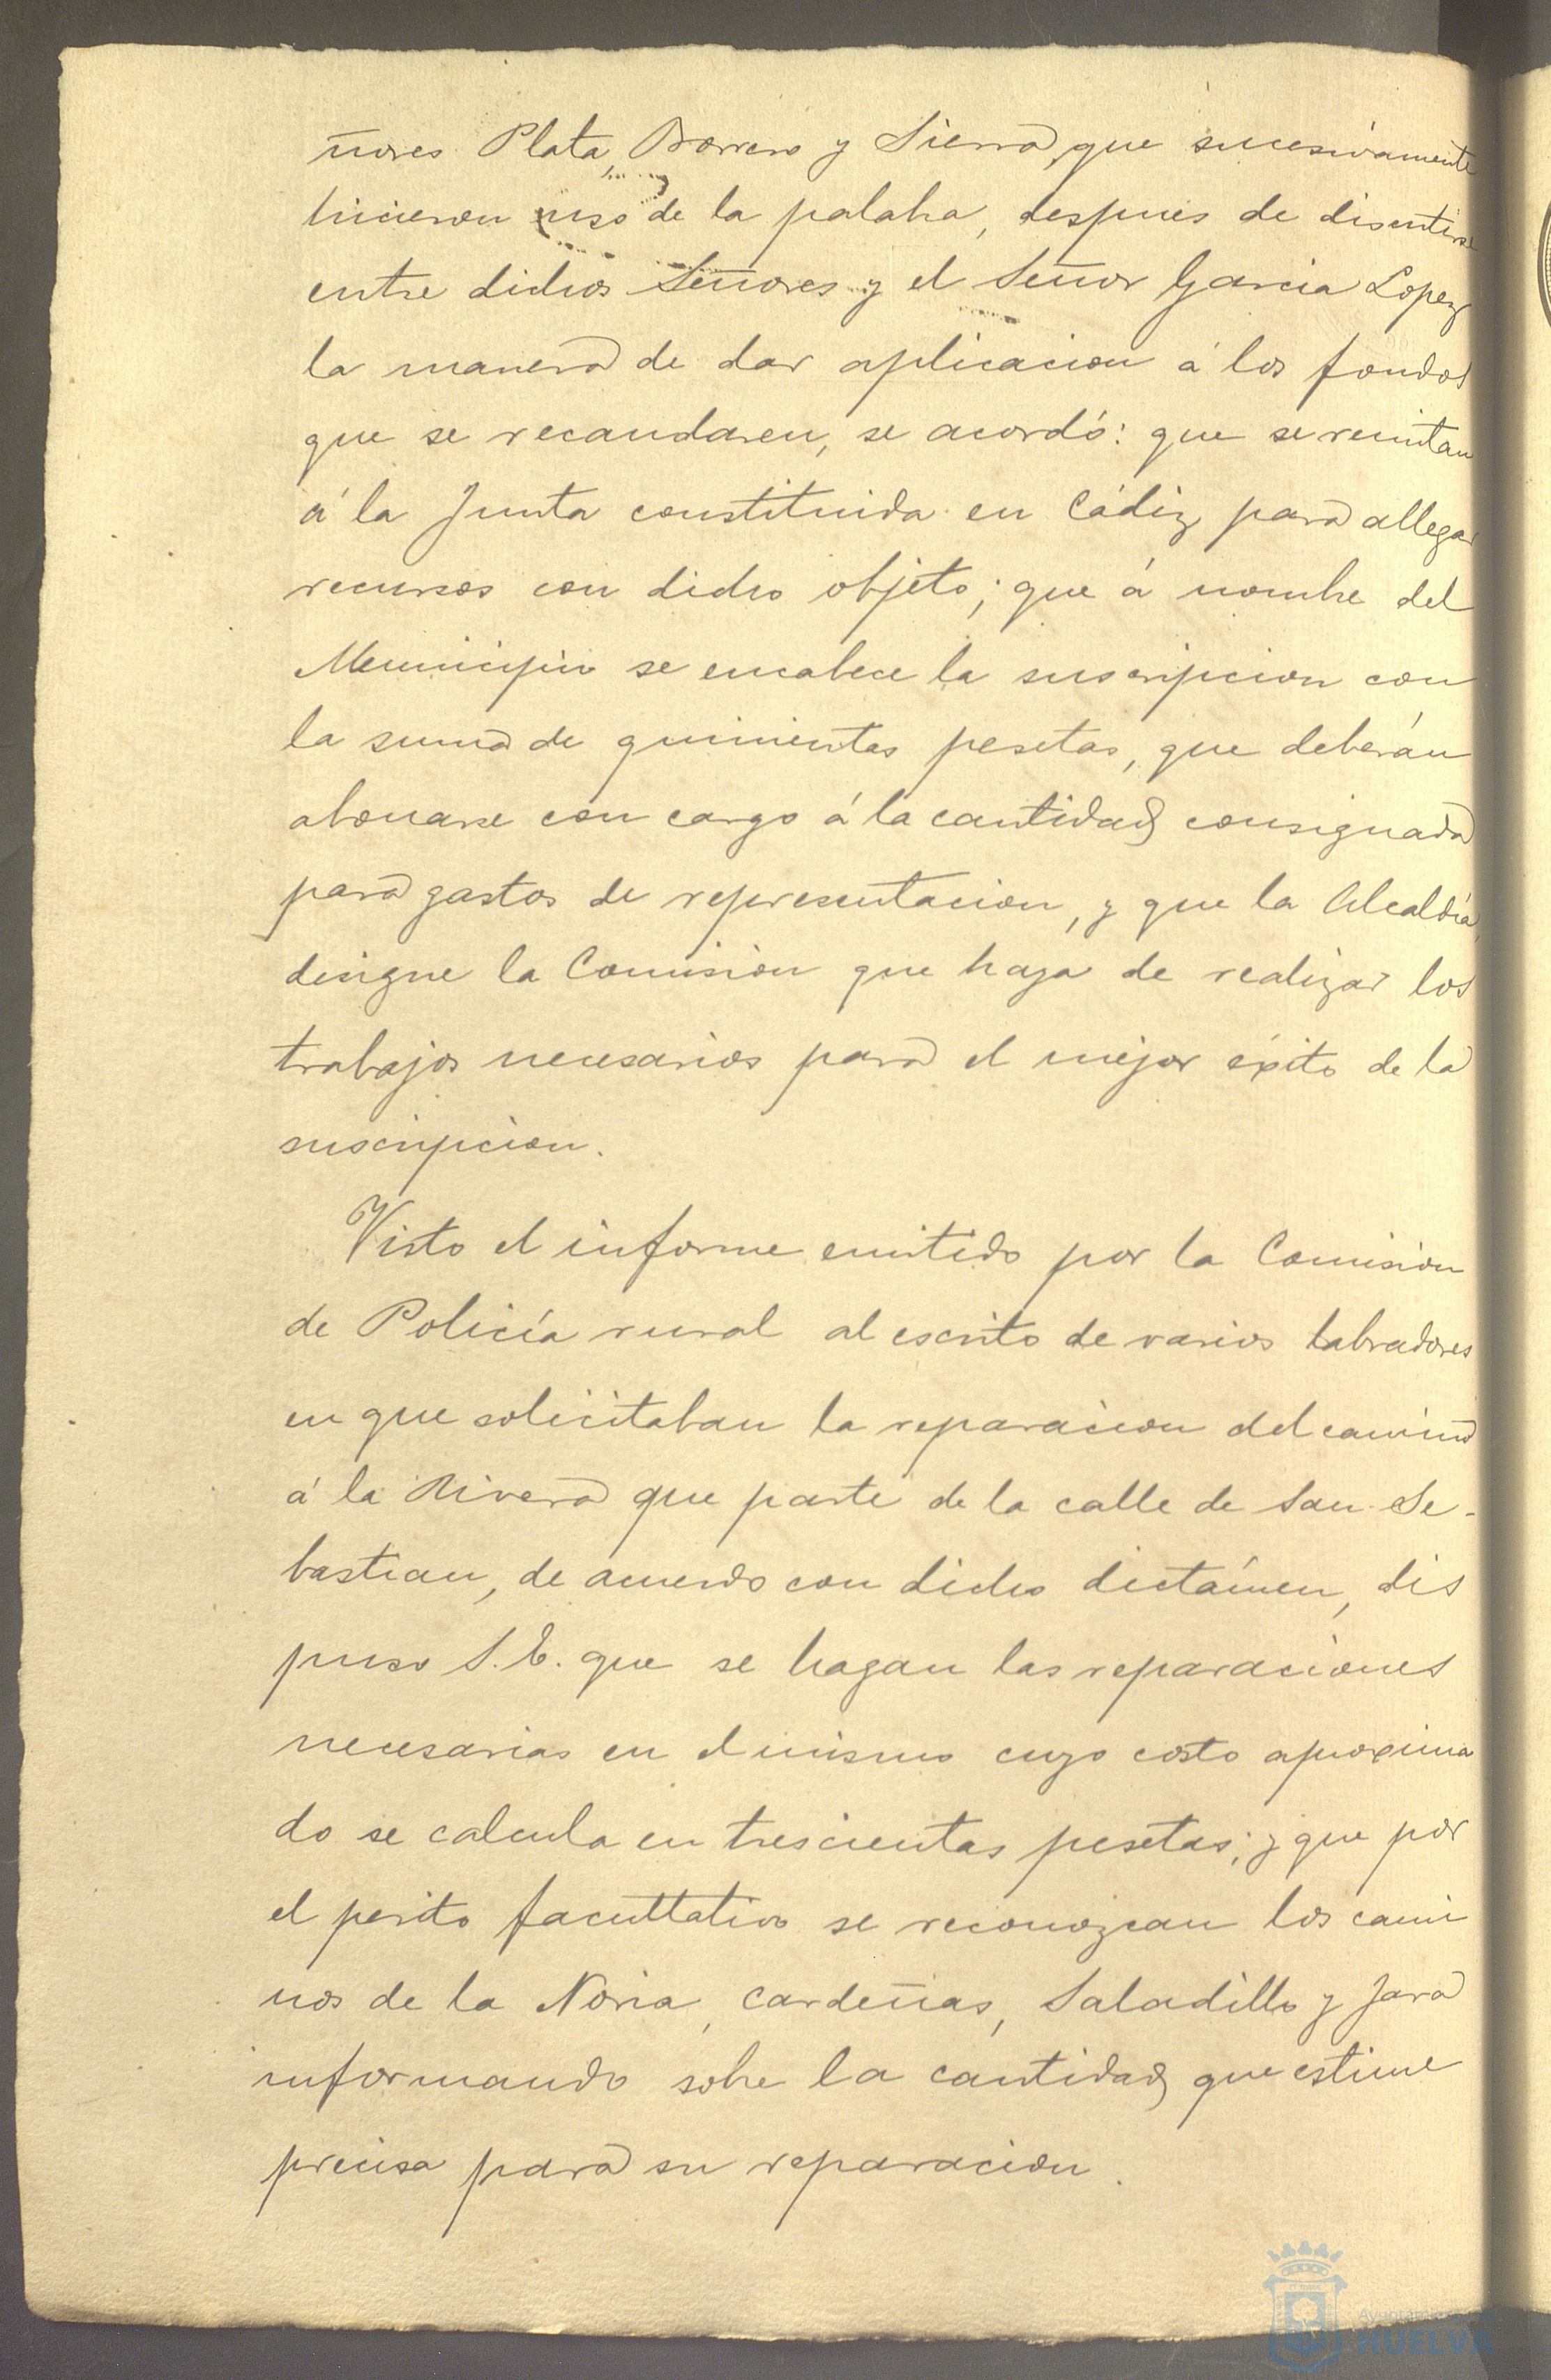 ñores Plata, Borrero y Sierra, que sucesivamente
hicieron uso de la palabra, despues de discutirse
entre dichos Señores y el Señor Garcia Lopez
la manera de dar aplicacion á los fondos
que se recaudaren, se acordó: que se remitan
á la Junta constituida en Cádiz para allegar
recursos con dicho objeto; que á nombre del
Municipio se encabece la suscripcion con
la suma de quinientas pesetas, que deberán
abonarse con cargo á la cantidad consignada
para gastos de representacion, y que la Alcaldía
designe la Comision que haya de realizar los
trabajos necesarios para el mejor éxito de la
suscripcion.
Visto el informe emitido por la Comision
de Policía rural al escrito de varios labradores
en que solicitaban la reparacion del camino
á la Rivera que parte de la calle de San Se-
bastian, de acuerdo con dicho dictámen, dis
puso S. E. que se hagan las reparaciones
necesarias en el mismo cuyo costo aproxima
do se calcula en trescientas pesetas; y que por
el perito facultativo se reconozcan los cami
nos de la Noria, Cardeñas, Saladillo y Jara
informando sobre la cantidad que estime
precisa para su reparacion.
Ayuntamiento
HUELVA